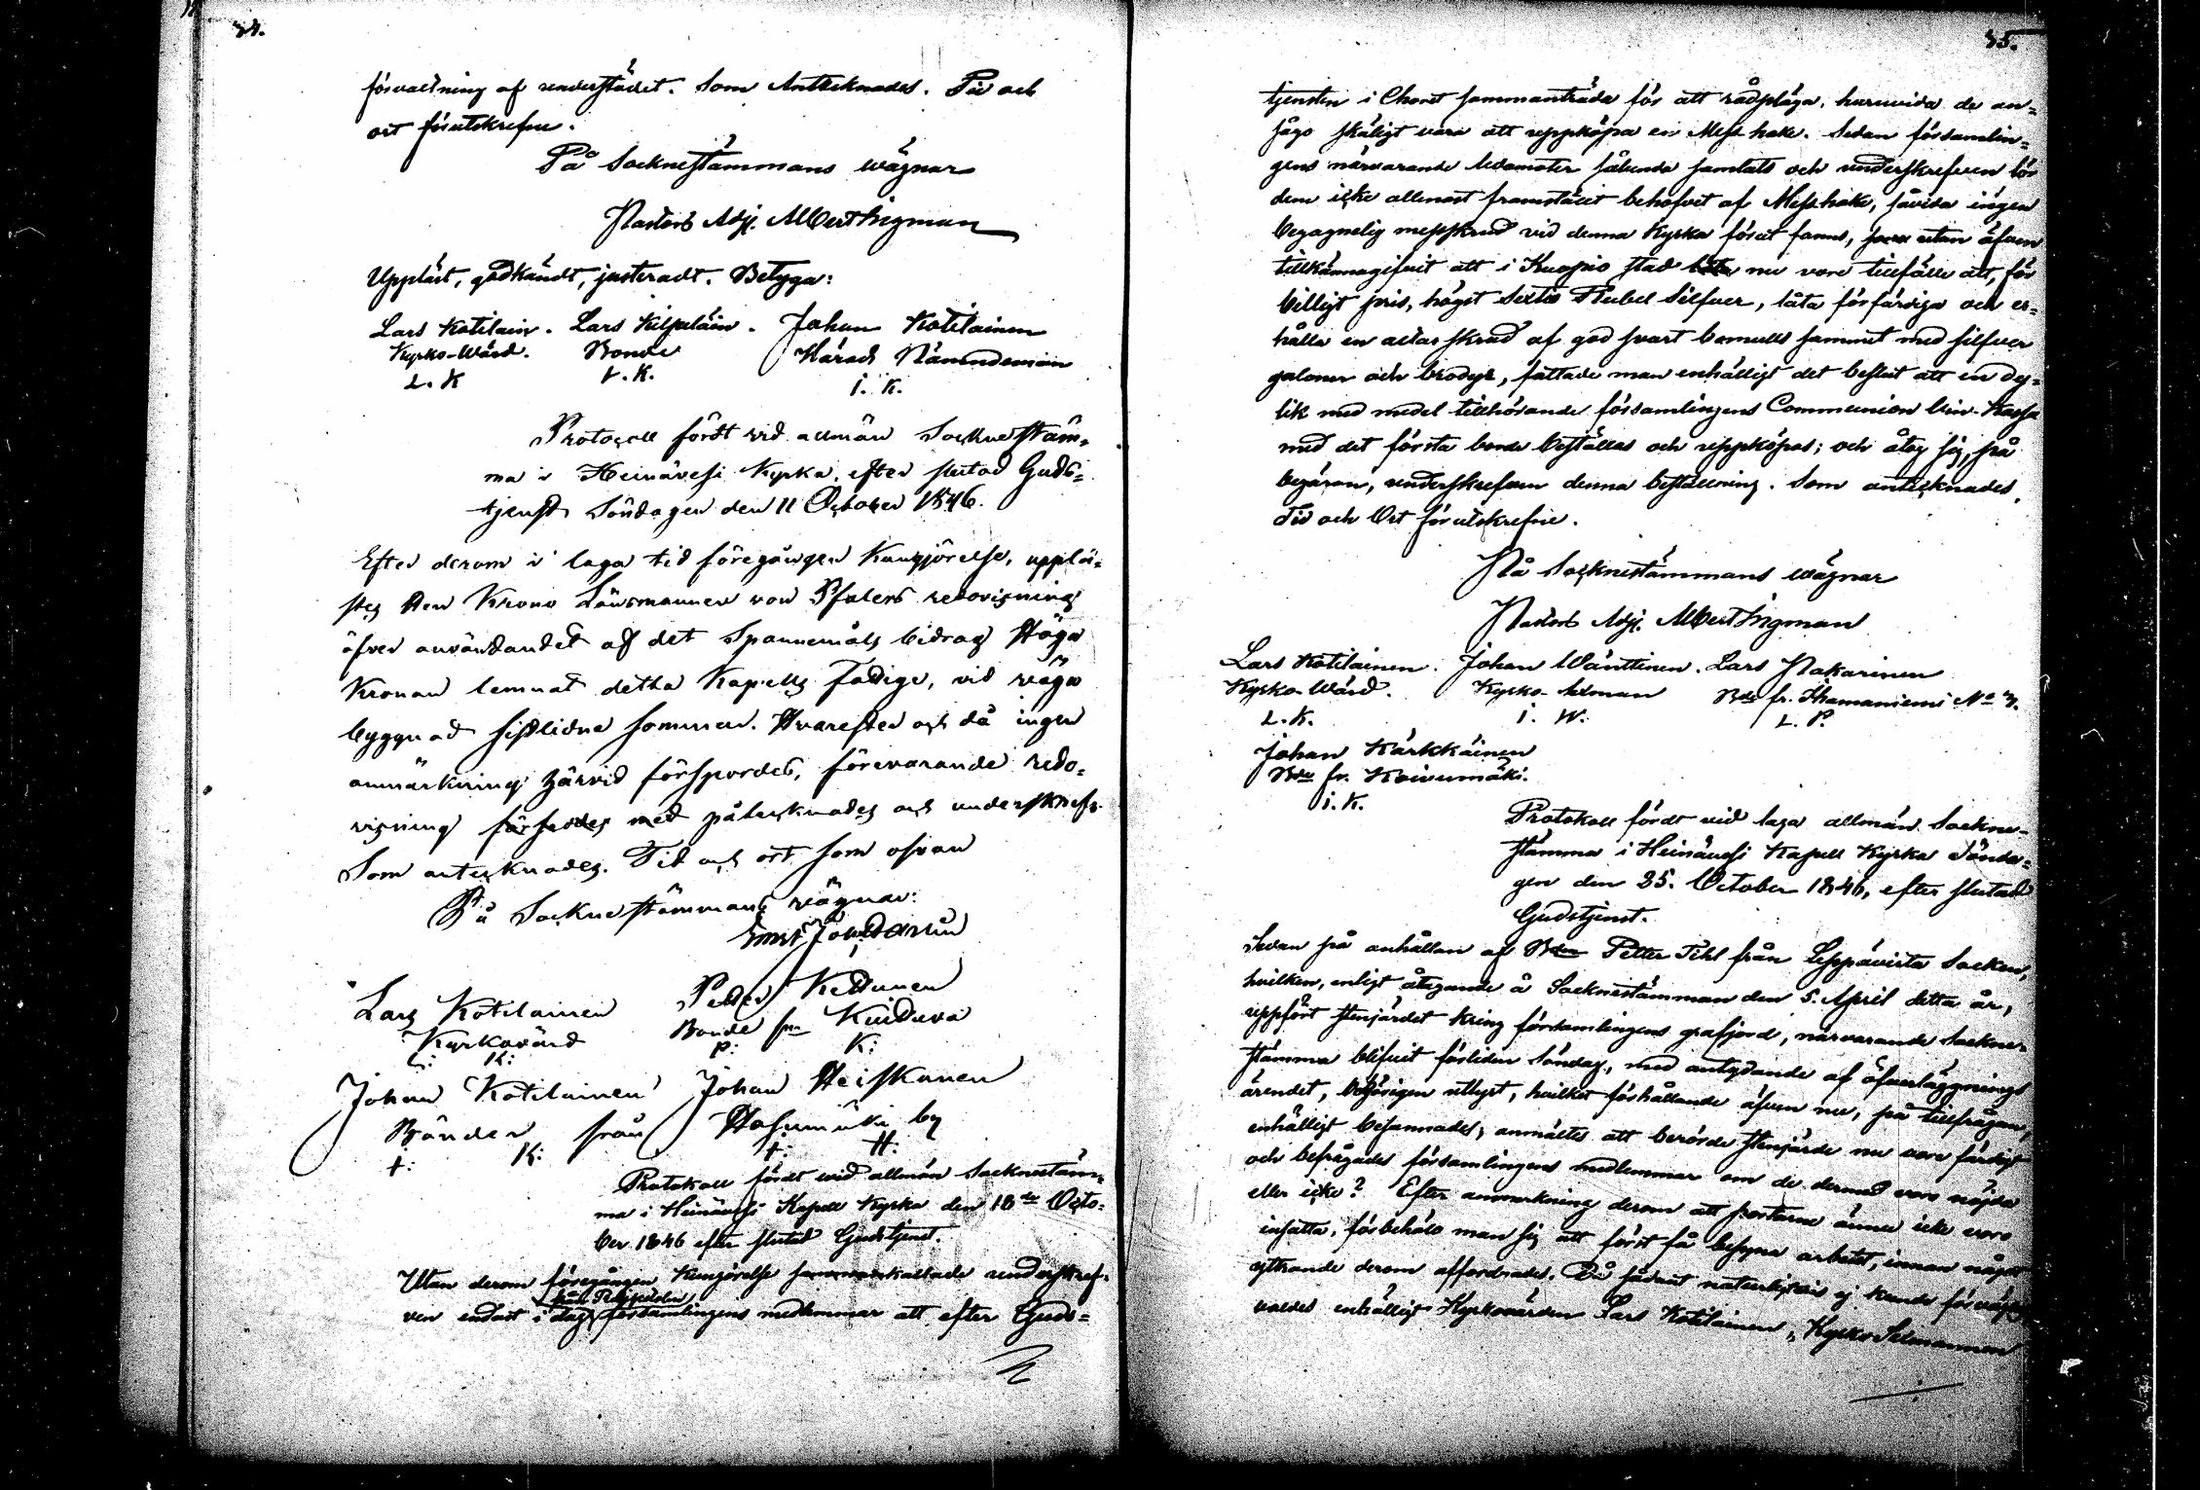 34.
förvaltning af understödet. Som Antecknades. Tid och
ort förutskrefne.
På Socknestämmans wägnar
Pastors Adj. Albert Ingman
Uppläst, godkändt, justeradt. Betyga:
Lars Kotilain. Lars Kilpeläin. Johan Kotilainen
Kyrko-Wärd. Bonde Härads Nämndeman
L. K L. K. i. K.
Protocoll fördt vid allmän Sockne stäm-
ma i Heinävesi Kyrka, efter slutad Guds-
tjenst Söndagen den 11 October 1846.
Efter derom i laga tid föregången Kungörelse, upplä-
stes den Krono Länsmannen von Pfalers redovisning
öfver användandet af det Spannemåls bidrag Höga
Kronan lemnat detta Kapells fattige, vid väga
byggnad sistlidne sommar. Hvarefter och då ingen
anmärkning härvid förspordes, förevarande redo-
visning försedes med påtecknades och underskrefs.
Som antecknades. Tid och ort som ofvan
På Sockne stämmans vägnar:
Lars Kotilainen Petter Kettunen
Kyrkovärd Bonde frn
L: K: P: K:
Johan Kotilainen Johan Heiskanen
Bönder från Hasumäki by
J: K: J: H:
Protokoll fördt wid allmän Socknestäm-
ma i Heinävesi Kapell Kyrka den 18de Octo-
ber 1846 efter slutad Gudstjenst.
Utan derom föregången Kungörelse kallade underskref-
ven endast i dag församlingens medlemmar att efter Guds-
35.
tjensten i Choret sammanträda för att rådpläga, huruvida de an-
sågo skäligt vara att uppköpa en Mess hake. Sedan församlin-
gens närvarande ledamöter sålunda samlats och underskrefven för
dem icke allenast framstält behofvet af Mess hake, såvida ingen
begagnelig messskrud vid denna Kyrka förut fanns, utan äfven
tillkännagifvit att i Kuopio stad nu vore tillfälle att, för
billigt pris, högst Sextio Rubel Silfver, låta förfärdiga och er-
hålla en altar skrud af god svart bomulls sammet med silfver
galoner och brodyr, fattade man enhälligt det beslut att en dy-
lik med medel tillhörande församlingens Communion Vin-Kassa
med det första borde beställas och uppköpas; och åtog sig, på
begäran, underskrefven denna beställning. Som antecknades,
Tid och Ort förutskrefne.
På Socknestämmans wägnar
Pastors Adj. Albert Ingman
Lars Kotilainen. Johan Wänttinen. Lars Pakarinen
Kyrko-Wärd. Kyrko-Sexman Bde fr. Ihamaniemi No 3.
L. K. i. W. L. P.
Johan Kärkkäinen
Bde fr. Koivumäki.
i. K.
Protokoll fördt vid laga allmän Sockne-
stämma i Heinävesi Kapell Kyrka Sönda-
gen den 25. October 1846, efter slutad
Gudstjenst.
Sedan på anhållan af Bden Petter Tihl från Leppävirta Socken,
hvilken, enligt åtagande å Socknestämman den 5. April detta år,
uppfört stengärdet kring församlingens grafjord, närvarande Sockne-
stämma blifvit förliden Söndag, med antydande af öfverläggnings
ärendet, behörigen utlyst, hvilket förhållande äfven nu, på tillfrågan,
enhälligt besannades; anmältes att berörde stengärde nu vore färdigt
och befrågades församlingens medlemmar om de dermed voro nöjda
eller icke? Efter anmerkning derom att portarne ännu icke voro
insatta, förbehöllo man sig att först få besyna arbetet, innan något
yttrande derom affordrades. Då sådant naturligtvis ej kunde förvägras
valdes enhälligt Kyrkovärden Lars Kotilainen, Kyrko Sexmannen